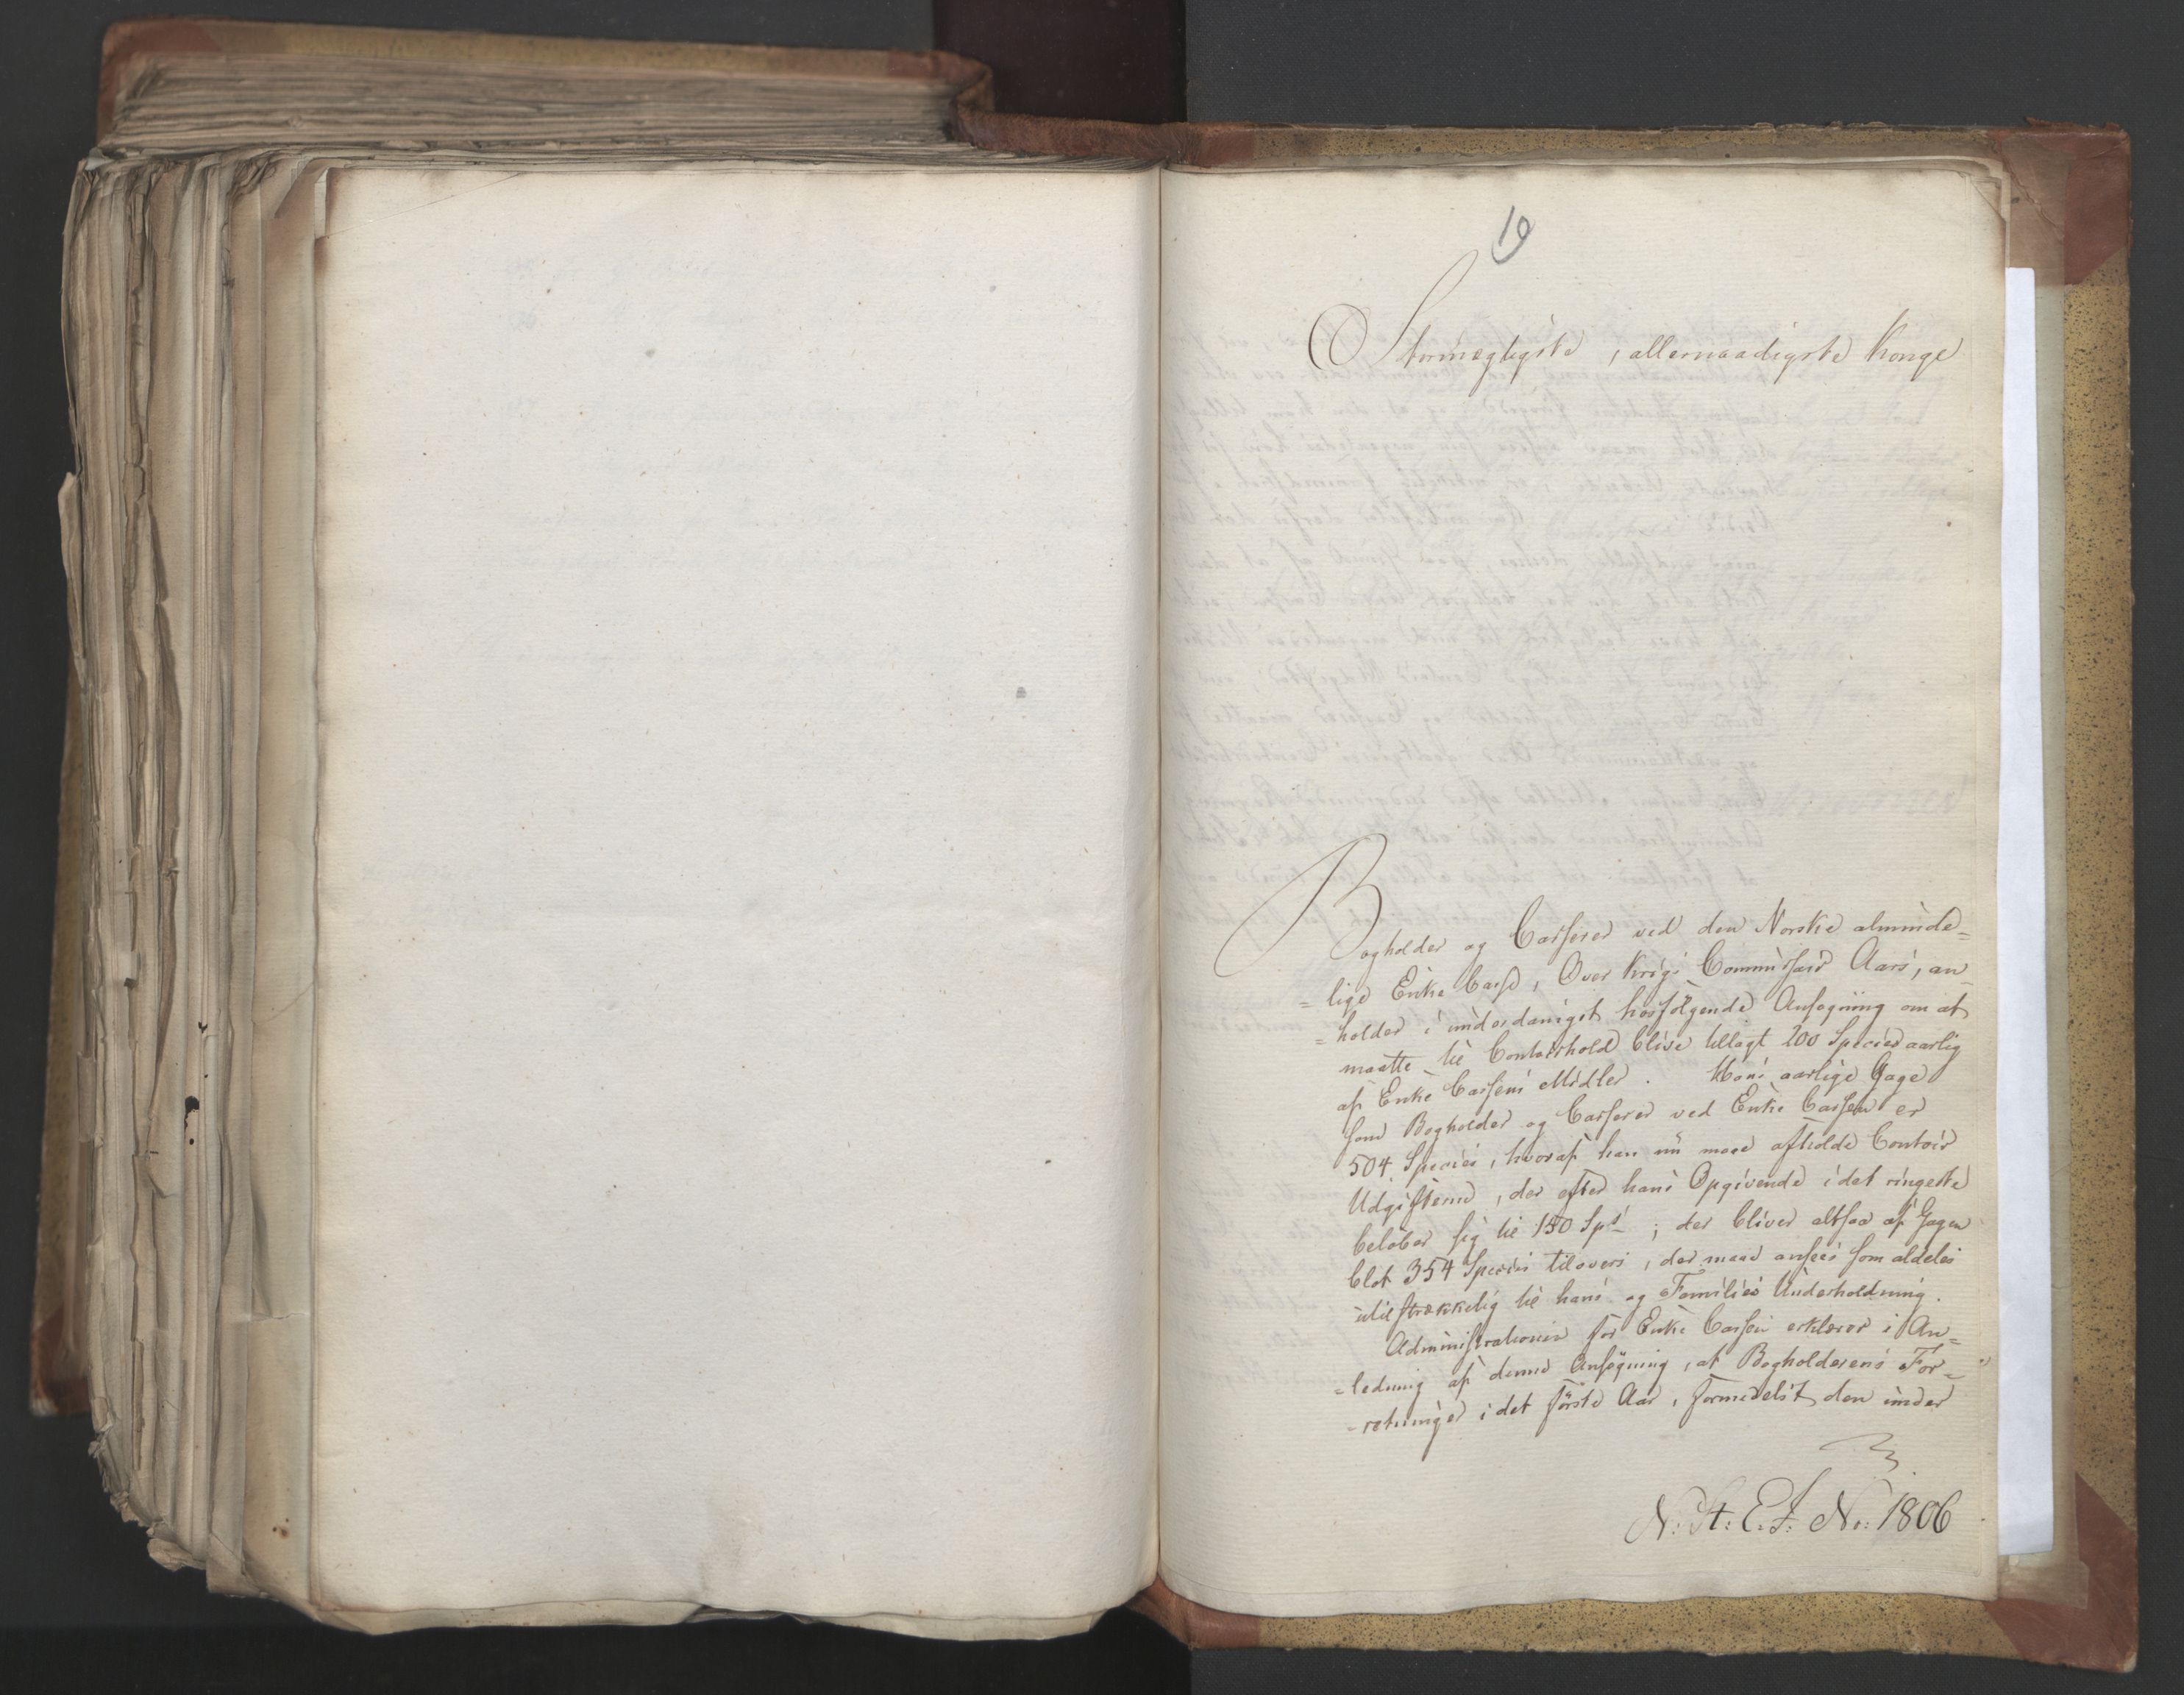 19
Stormægtigste, allernaadigste Konge
Bogholder og Casserer ved den Norske alminde=
=lige Enke Casse, Over Krigs Commissair Aars, an=
=holder i underdanigst hosfølgende Ansøgning om at
maatte til Contoirhold blive tillagt 200 Species aarlig
af Enke Cassens Midler. Hans aarlige Gage
som Bogholder og Casserer ved Enke Cassen er
504 Species, hvoraf han nu maae afholde Contoir
Udgifterne, der efter hans Opgivende i det ringeste
beløber sig til 150 Sps; der bliver altsaa af Gagen
blot 354 Species tilovers, der maae ansees som aldeles
utilstrækkelig til hans og Families Underholdning.
Administrationen for Enke Cassen erklærer i An=
=ledning af denne Ansøgning, at Bogholderens For=
=retninger i det første Aar, formedelst den under
N: St: E. F: No: 1806